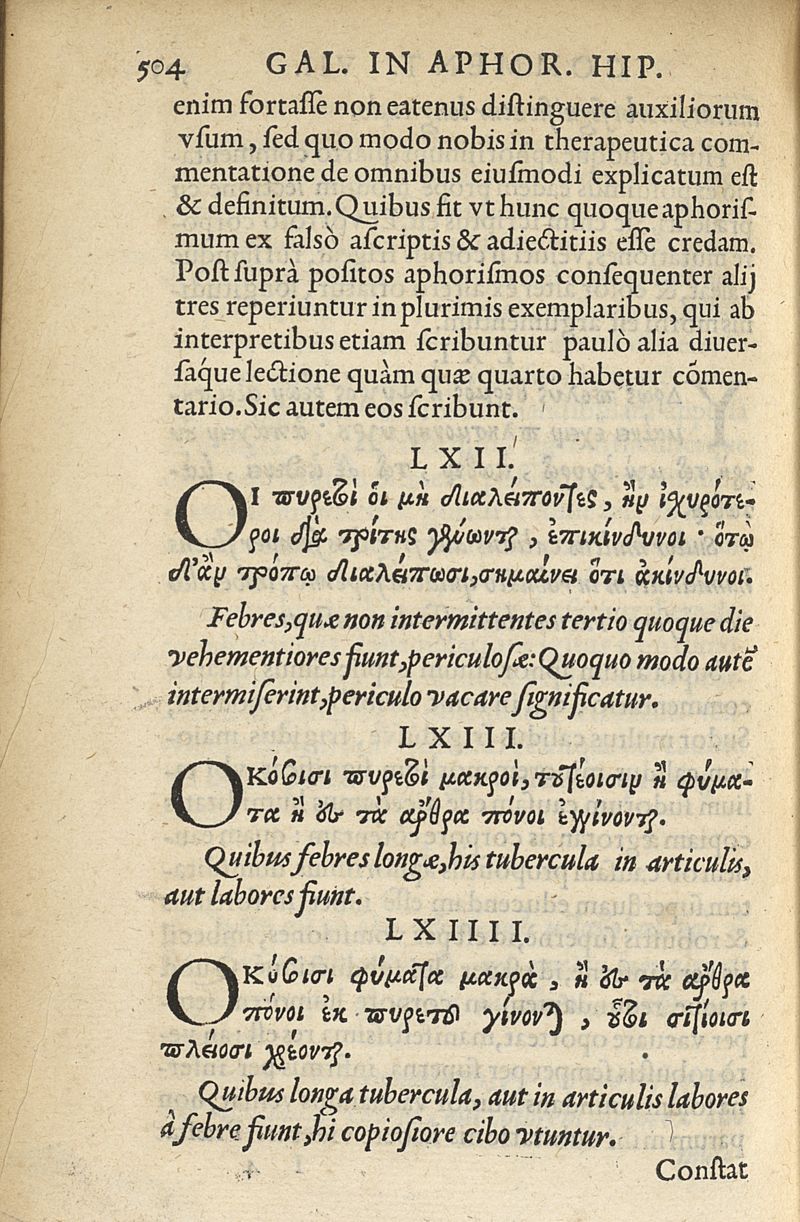 504 GAL. IN APHOR. HIP.
enim fortaſſe non eatenus diſtinguere auxiliorum
vſum, ſed quo modo nobis in therapeutica com-
mentatione de omnibus eiuſmodi explicatum eſt
& definitum. Quibus fit vt hunc quoque aphoriſ-
mum ex falsò aſcriptis & adiectitiis eſſe credam.
Poſt ſuprà poſitos aphoriſmos conſequenter alij
tres reperiuntur in plurimis exemplaribus, qui ab
interpretibus etiam ſcribuntur paulò alia diuer-
ſáque lectione quàm quæ quarto habetur cõmen-
tario. Sic autem eos ſcribunt.
LXII.
ΟΙ πυρετοὶ ὁι μὴ διαλείποντες, ἢν ἰχυρότε-
ροι διὰ τρίτης γίνωνται, ἐπικίνδυνοι· ὅτῳ
δ'ἂν τρόπῳ διαλείπωσι, σημαίνει ὅτι ἀκίνδυνοι.
Febres, quæ non intermittentes tertio quoque die
vehementiores fiunt, periculoſæ: Quoquo modo autẽ
intermiſerint, periculo vacare ſignificatur.
LXIII.
ΟΚόσοισι πυρετοὶ μακροὶ, τουτέοισιν ἢ φύμα-
τα ἢ ἐν τὰ ἄρθρα πόνοι ἐγγίνονται.
Quibus febres longæ, his tubercula in articulis,
aut labores fiunt.
LXIIII.
ΟΚόσοισι φύματα μακρὰ, ἢ ἐν τὰ ἄρθρα
πόνοι ἐκ πυρετοῦ γίνονται, οὗτοι σιτίοισι
πλείοσι χρέονται.
Quibus longa tubercula, aut in articulis labores
à febre fiunt, hi copioſiore cibo vtuntur.
Conſtat